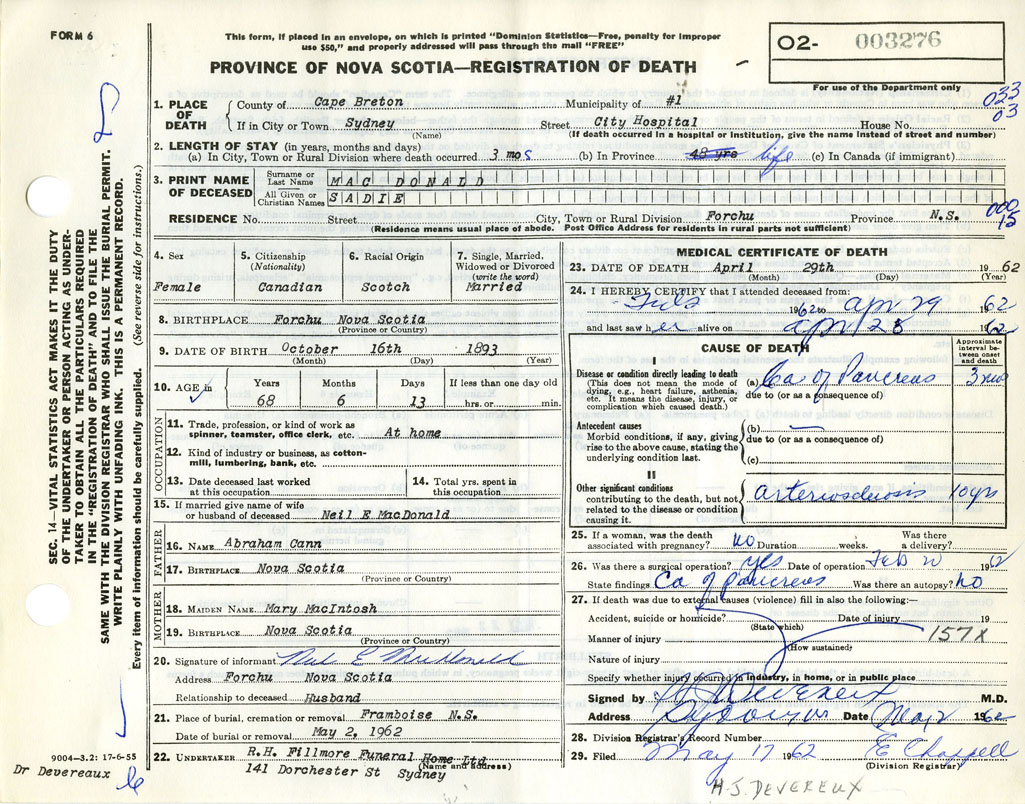 FORM 6
This form, if placed in an envelope, on which is printed "Dominion Statistics—Free, penalty for improper
use $50," and properly addressed will pass through the mail "FREE"
PROVINCE OF NOVA SCOTIA—REGISTRATION OF DEATH
O2- 003276
For use of the Department only
033
03
SEC. 14—VITAL STATISTICS ACT MAKES IT THE DUTY
OF THE UNDERTAKER OR PERSON ACTING AS UNDER-
TAKER TO OBTAIN ALL THE PARTICULARS REQUIRED
IN THE "REGISTRATION OF DEATH" AND TO FILE THE
SAME WITH THE DIVISION REGISTRAR WHO SHALL ISSUE THE BURIAL PERMIT.
WRITE PLAINLY WITH UNFADING INK. THIS IS A PERMANENT RECORD.
Every item of information should be carefully supplied. (See reverse side for instructions.)
1. PLACE OF DEATH
County of Cape Breton Municipality of #1
If in City or Town Sydney Street City Hospital House No.
(Name) (If death occurred in a hospital or institution, give the name instead of street and number)
2. LENGTH OF STAY (in years, months and days)
(a) In City, Town or Rural Division where death occurred 3 mos (b) In Province 48 yrs life (c) In Canada (if immigrant)
3. PRINT NAME OF DECEASED
Surname or Last Name MAC DONALD
All Given or Christian Names SADIE
RESIDENCE No. Street City, Town or Rural Division Forchu Province N.S.
000
15
(Residence means usual place of abode. Post Office Address for residents in rural parts not sufficient)
4. Sex
Female
5. Citizenship
(Nationality)
Canadian
6. Racial Origin
Scotch
7. Single, Married,
Widowed or Divorced
(write the word)
Married
8. BIRTHPLACE Forchu Nova Scotia
(Province or Country)
9. DATE OF BIRTH October 16th 1893
(Month) (Day) (Year)
10. AGE in
Years Months Days If less than one day old
68 6 13 hrs. or min.
OCCUPATION
11. Trade, profession, or kind of work as
spinner, teamster, office clerk, etc. At home
12. Kind of industry or business, as cotton-
mill, lumbering, bank, etc.
13. Date deceased last worked
at this occupation
14. Total yrs. spent in
this occupation
15. If married give name of wife
or husband of deceased Neil E MacDonald
FATHER
16. NAME Abraham Cann
17. BIRTHPLACE Nova Scotia
(Province or Country)
MOTHER
18. MAIDEN NAME Mary MacIntosh
19. BIRTHPLACE Nova Scotia
(Province or Country)
20. Signature of informant Neil E MacDonald
Address Forchu Nova Scotia
Relationship to deceased Husband
21. Place of burial, cremation or removal Framboise N.S.
Date of burial or removal May 2, 1962
22. UNDERTAKER R.H. Fillmore Funeral Home Ltd
(Name and address)
141 Dorchester St Sydney
9004—3.2: 17-6-55
Dr Devereaux
MEDICAL CERTIFICATE OF DEATH
23. DATE OF DEATH April 29th 1962
(Month) (Day) (Year)
24. I HEREBY CERTIFY that I attended deceased from:
1962 to apr 29 1962
and last saw her alive on apr 28 1962
CAUSE OF DEATH
Approximate
interval be-
tween onset
and death
I
Disease or condition directly leading to death
(This does not mean the mode of
dying, e.g., heart failure, asthenia,
etc. It means the disease, injury, or
complication which caused death.)
(a) Ca of Pancreas 3 mos
due to (or as a consequence of)
Antecedent causes
Morbid conditions, if any, giving
rise to the above cause, stating the
underlying condition last.
(b) —
due to (or as a consequence of)
(c)
II
Other significant conditions
contributing to the death, but not
related to the disease or condition
causing it.
arteriosclerosis 10 yrs
25. If a woman, was the death
associated with pregnancy? no Duration weeks. Was there
a delivery?
26. Was there a surgical operation? yes Date of operation Feb 20 1962
State findings Ca of pancreas Was there an autopsy? no
27. If death was due to external causes (violence) fill in also the following:—
Accident, suicide or homicide? Date of injury 19
(State which)
Manner of injury 157X
(How sustained)
Nature of injury
Specify whether injury occurred in industry, in home, or in public place
Signed by H J Devereux M.D.
Address Sydney NS Date May 2 1962
28. Division Registrar's Record Number
29. Filed May 17 1962 E Chappell
(Division Registrar)
H.J. DEVEREUX